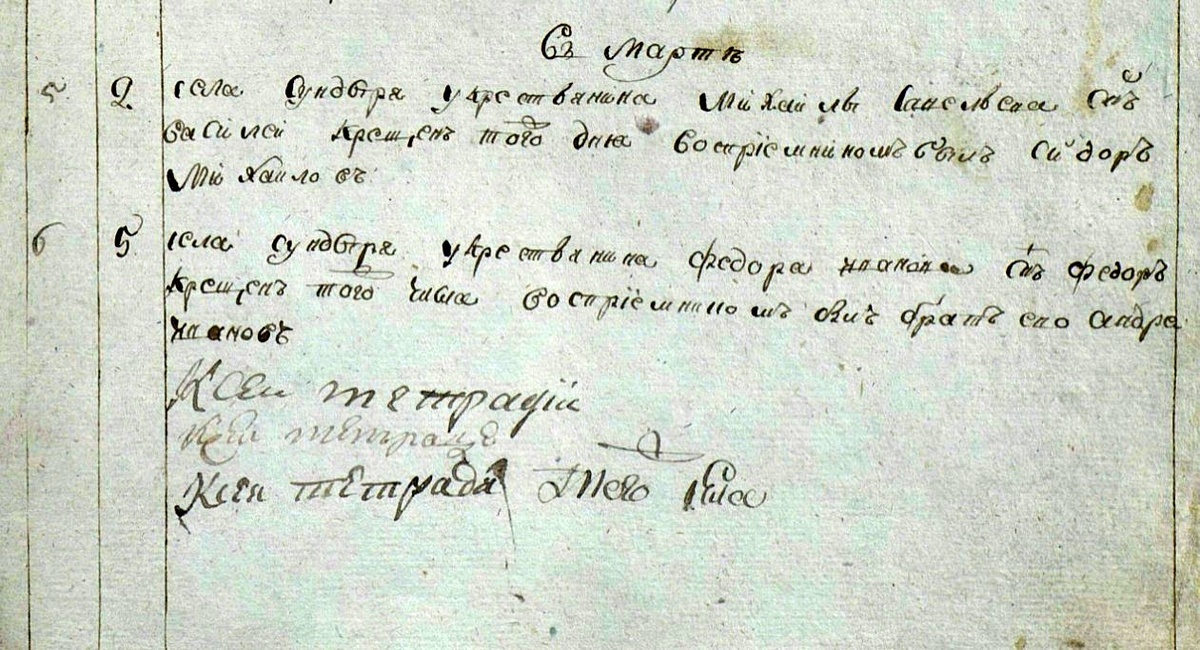 Въ мартѣ
5 2 села Сундыря у крестьянина Михаилы Савельева снъ
василеи крещенъ того дня воспрiемникомъ былъ Сидоръ
Михаиловъ
6 5 села сундыря у крестьянина федора иванова снъ федоръ
крещенъ того числа воспрiемникомъ былъ братъ ево андре
ивановъ
К сеи тетрадiи
К сеи тетраде
К сеи тетрада того села